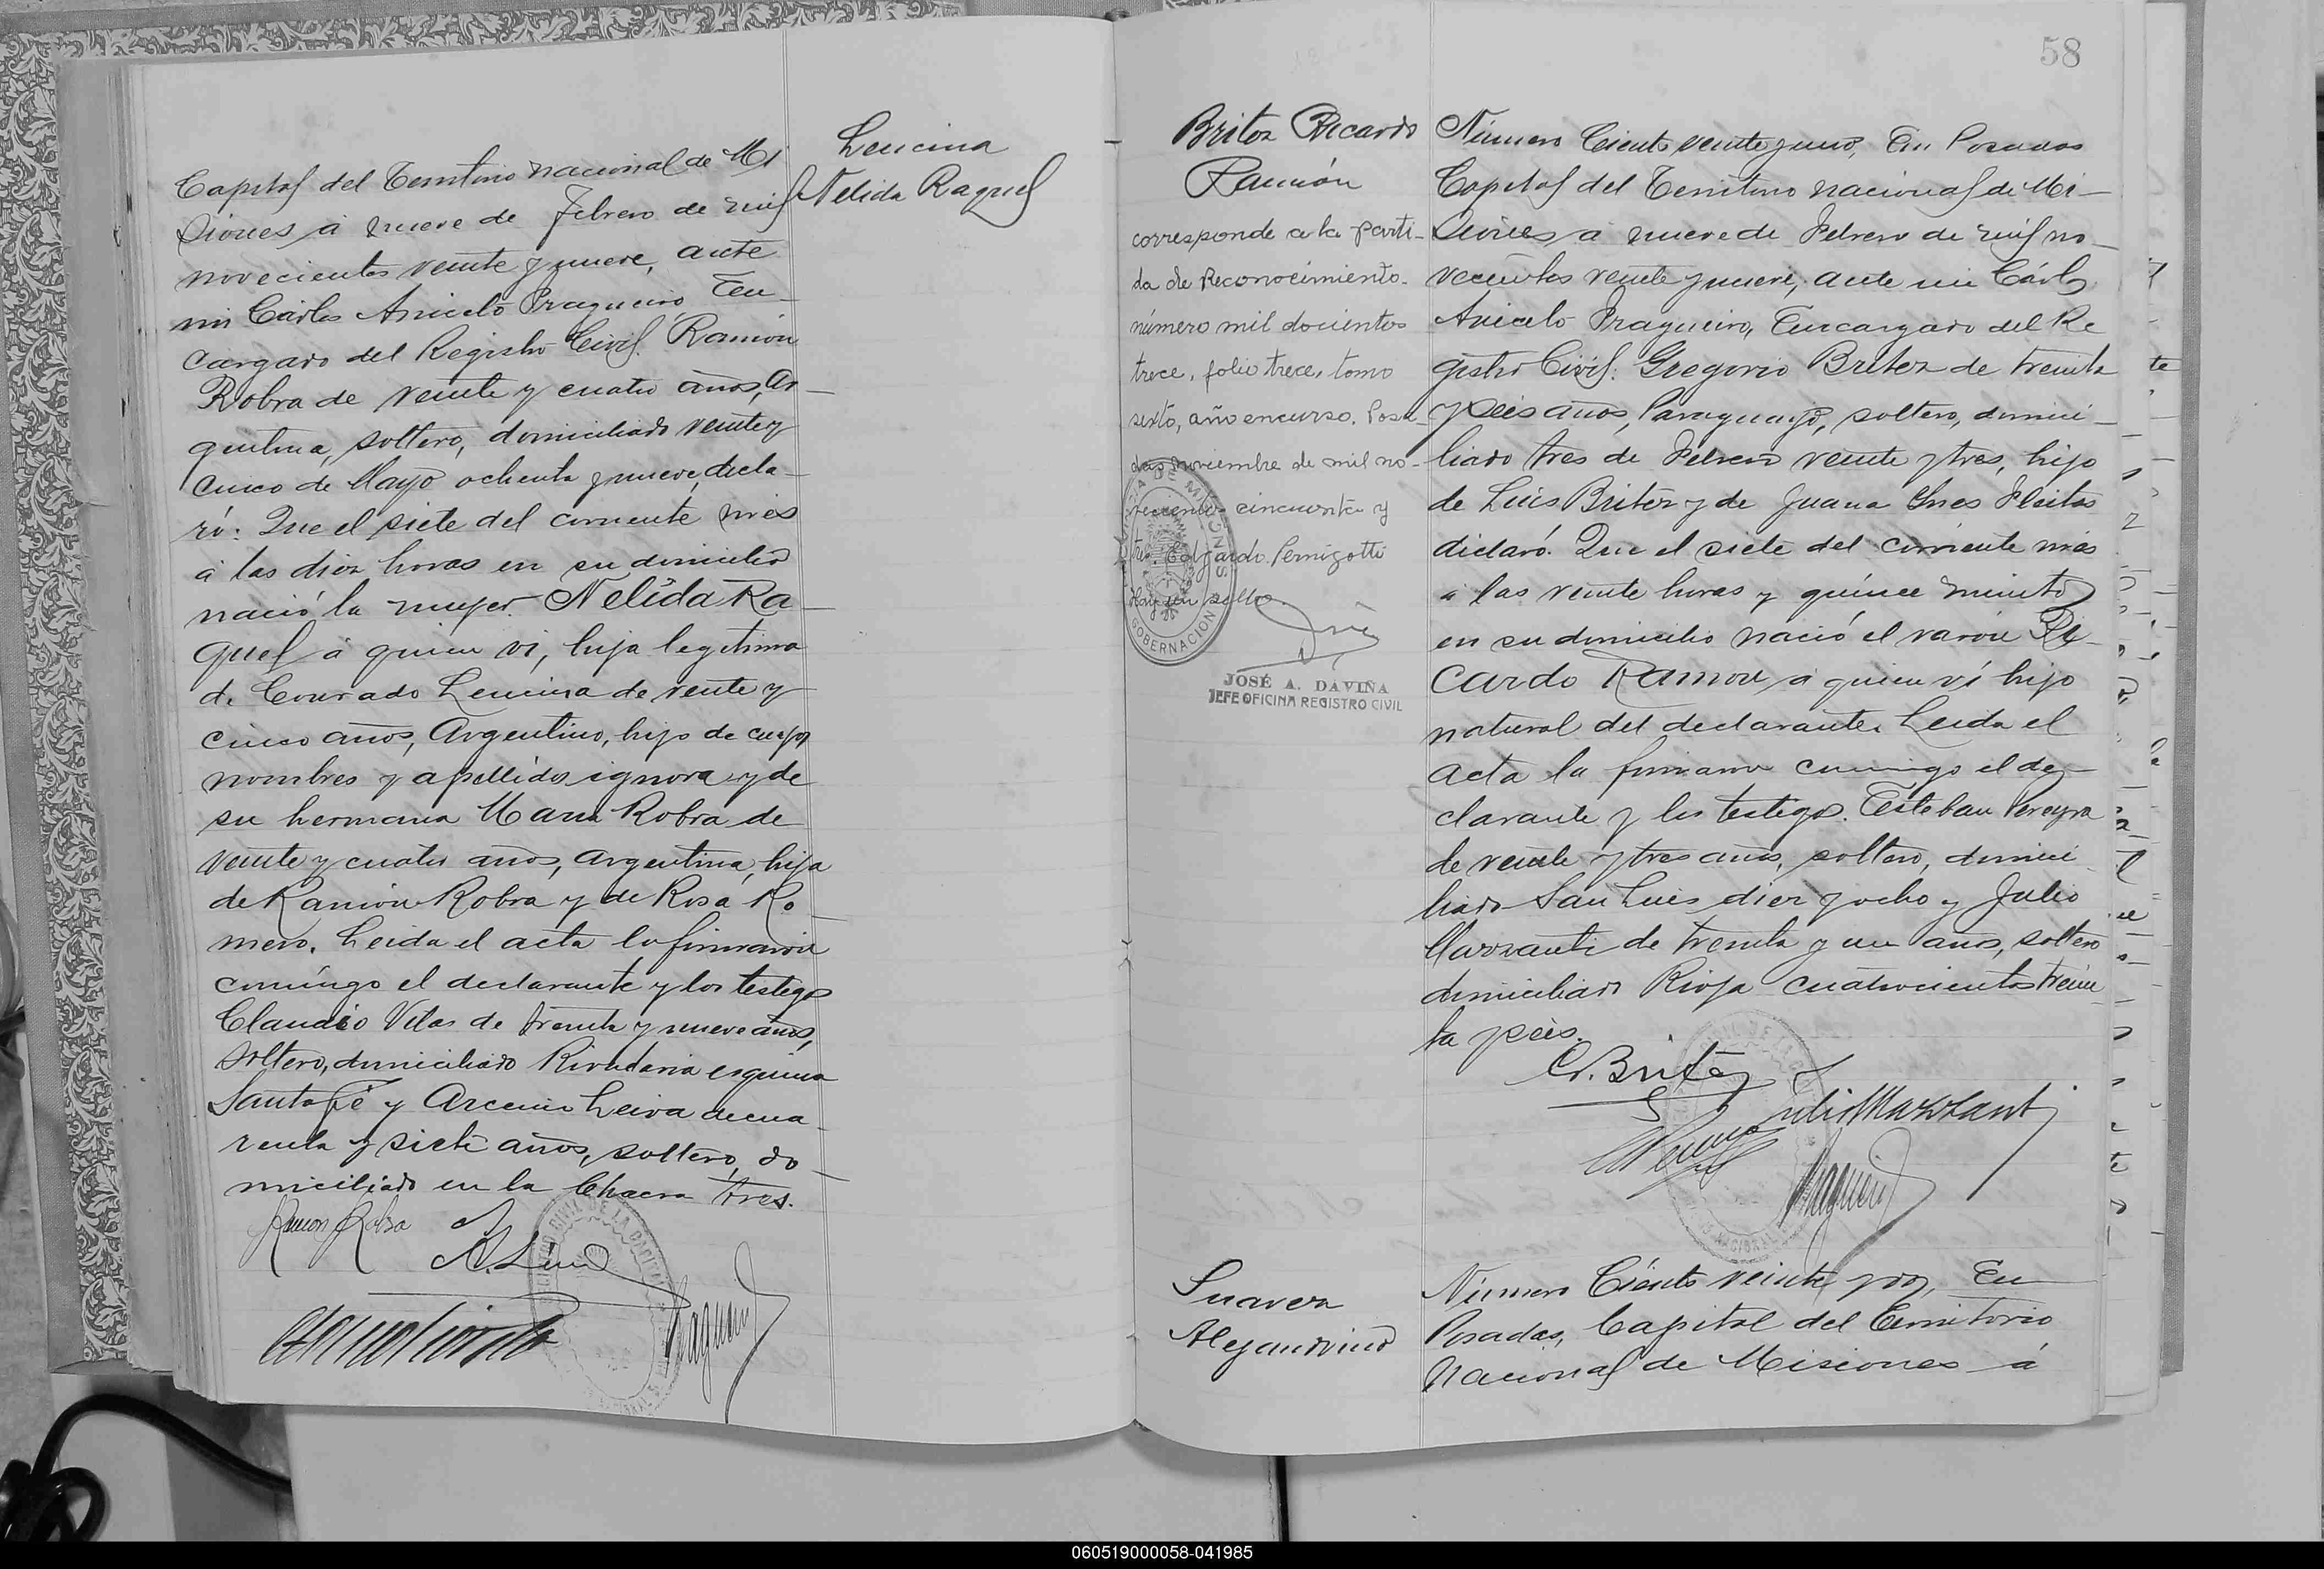 Lencina
Nelida Raquel
Capital del Territorio nacional de Mi
siones á nueve de Febrero de mil
novecientos veinte y nueve, ante
mi Cárlos Aniceto Fragueiro, En
cargado del Registro Civil. Ramón
Robra de veinte y cuatro años, ar
gentino, soltero, domiciliado veintey
cinco de Mayo ochenta y nueve, decla
ró: Que el siete del corriente mes
á las diez horas en su domicilio
nació la mujer Nelida Ra
quel á quien vi, hija legitima
de Conrado Lencina de veinte y
cinco años, Argentino, hijo de cuyos
nombres y apellidos ignora y de
su hermana Maria Robra de
veinte y cuatro años, argentina, hija
de Ramón Robra y de Rosa Ro
mero. Leida el acta la firmaron
conmigo el declarante y los testigos
Claudio Vilas de treinta y nueve años,
soltero, domiciliado Rivadavia esquina
Santa Fé y Arcenio Leiva de cua
renta y siete años, soltero, do
miciliado en la Chacra tres.
Ramon Robra
58
Britez Ricardo
Ramón
corresponde a la parti-
da de Reconocimiento
número mil docientos
trece, folio trece, tomo
sexto, año en curso. Posa-
das noviembre de mil no-
vecientos cincuenta y
tres Edgardo Pernigotti
Hay un sello
GOBERNACION
JOSÉ A. DAVIÑA
JEFE OFICINA REGISTRO CIVIL
Número Ciento veinte y uno, En Posadas
Capital del Territorio nacional de Mi
siones á nueve de Febrero de mil no
vecientos veinte y nueve, ante mi Cárlos
Aniceto Fragueiro, Encargado del Re
gistro Civil: Gregorio Britez de treinta
y seis años, Paraguayo, soltero, domici
liado tres de Febrero veinte y tres, hijo
de Luis Britez y de Juana Ines Fleitas
declaró: Que el siete del corriente mes
á las veinte horas y quince minutos
en su domicilio nació el varón Ri
cardo Ramon á quien ví hijo
natural del declarante. Leida el
acta la firmaron conmigo el de
clarante y los testigos. Esteban Pereyra
de veinte y tres años, soltero, domici
liado San Luis diez y ocho y Julio
Mazzanti de treinta y un años, soltero
domiciliado Rioja cuatrocientos trein
ta y seis.
G. Britez
Julio Mazzanti
Suarez
Alejandrino
Número Ciento veinte y dos, En
Posadas, Capital del Territorio
Nacional de Misiones á
060519000058-041985